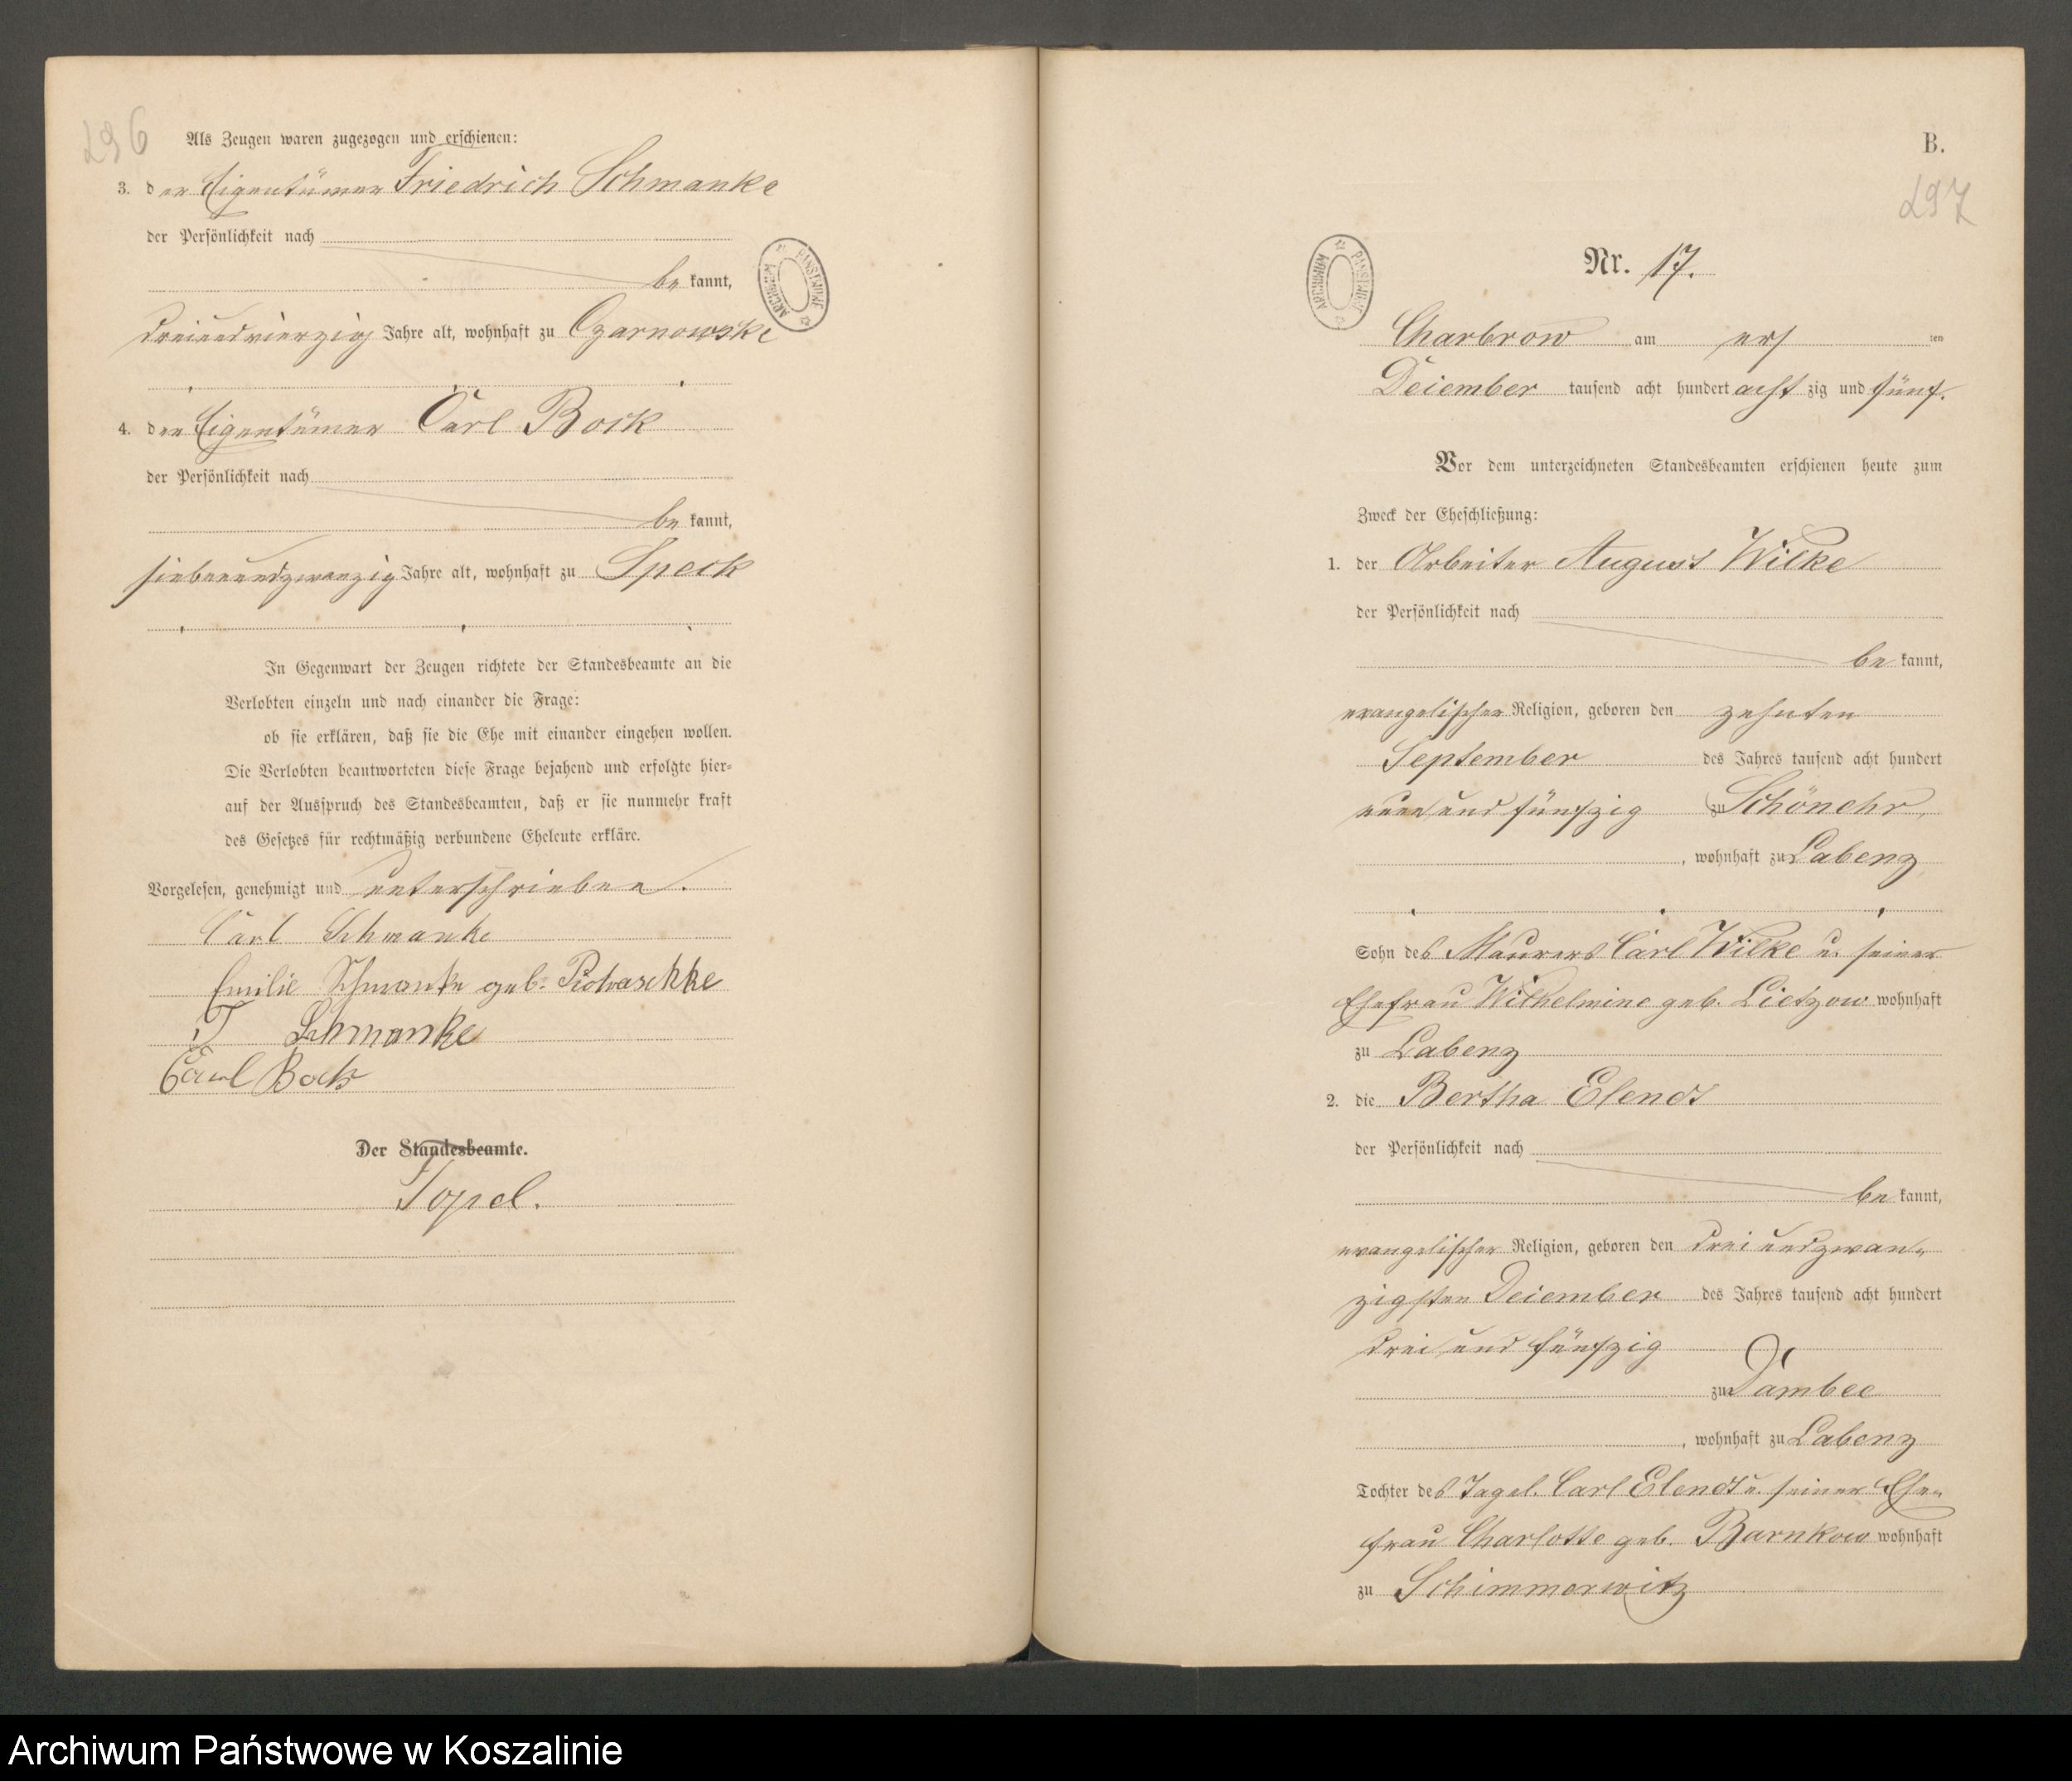 296
Als Zeugen waren zugezogen und erschienen:
3. der Eigentümer Friedrich Schmanke
der Persönlichkeit nach
be kannt,
dreiundvierzig Jahre alt, wohnhaft zu Czarnowske
4. der Eigentümer Carl Bock
der Persönlichkeit nach
be kannt,
siebenundzwanzig Jahre alt, wohnhaft zu Speck
In Gegenwart der Zeugen richtete der Standesbeamte an die
Verlobten einzeln und nach einander die Frage:
ob sie erklären, daß sie die Ehe mit einander eingehen wollen.
Die Verlobten beantworteten diese Frage bejahend und erfolgte hier-
auf der Ausspruch des Standesbeamten, daß er sie nunmehr kraft
des Gesetzes für rechtmäßig verbundene Eheleute erkläre.
Vorgelesen, genehmigt und unterschrieben.
Carl Schmanke
Emilie Schmanke geb. Piotraschke
F Schmanke
Carl Bock
Der Standesbeamte.
Topel.
ARCHIWUM PAŃSTWOWE
B.
297
ARCHIWUM PAŃSTWOWE
Nr. 17.
Charbrow am ers ten
Dezember tausend acht hundert acht zig und fünf.
Vor dem unterzeichneten Standesbeamten erschienen heute zum
Zweck der Eheschließung:
1. der Arbeiter August Wilke
der Persönlichkeit nach
be kannt,
evangelischer Religion, geboren den zehnten
September des Jahres tausend acht hundert
neun und fünfzig zu Schönehr,
, wohnhaft zu Labenz
Sohn des Maurers Carl Wilke u. seiner
Ehefrau Wilhelmine geb. Lietzow wohnhaft
zu Labenz
2. die Bertha Elendt
der Persönlichkeit nach
be kannt,
evangelischer Religion, geboren den drei undzwan-
zigsten Dezember des Jahres tausend acht hundert
drei und fünfzig
zu Jambee
, wohnhaft zu Labenz
Tochter des Tagel. Carl Elendt u. seiner Ehe-
frau Charlotte geb. Barnkow wohnhaft
zu Schimmerwitz
Archiwum Państwowe w Koszalinie